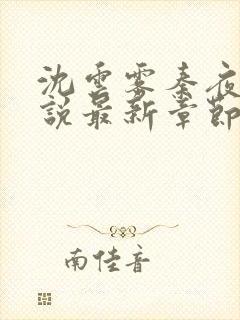 沈雲霧秦夜
說最新章節
南佳音